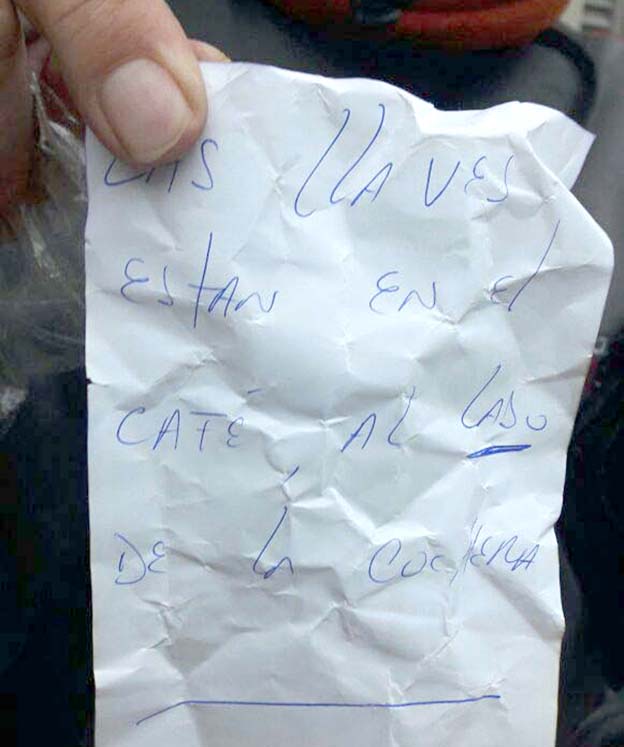 LAS LLAVES
ESTAN EN El
CAFÉ AL LADO
DE LA COCHERA